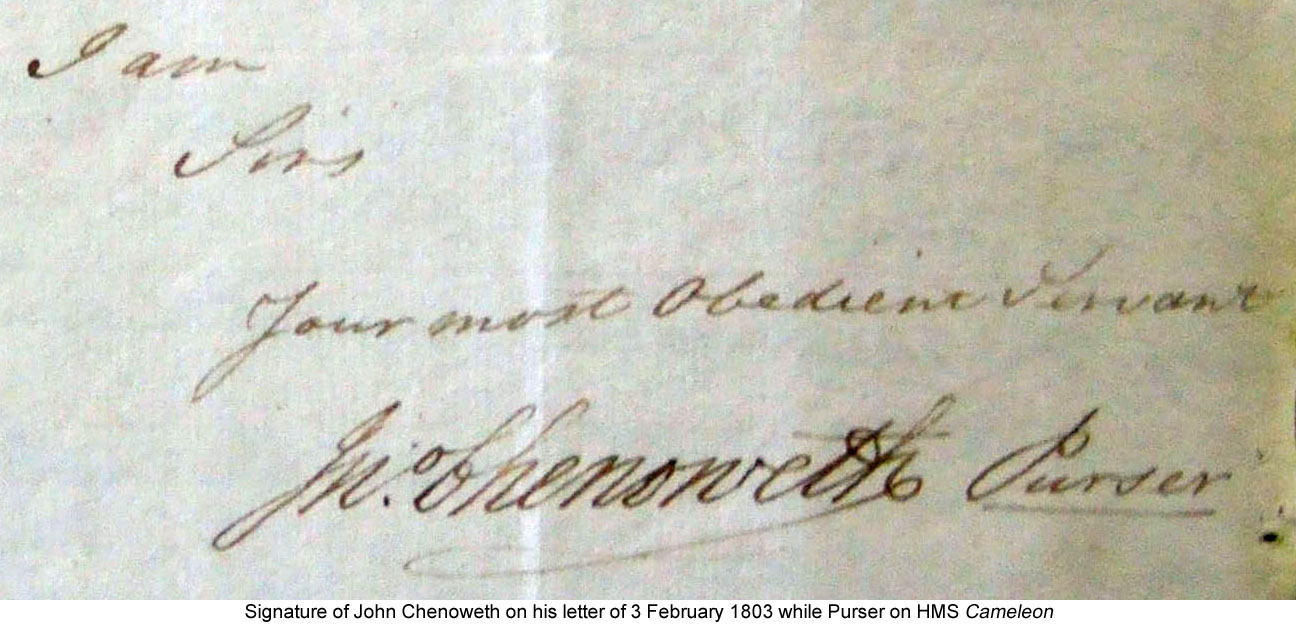 I am
Sirs
Your most Obedient Servant
Jno. Chenoweth Purser
Signature of John Chenoweth on his letter of 3 February 1803 while Purser on HMS Cameleon